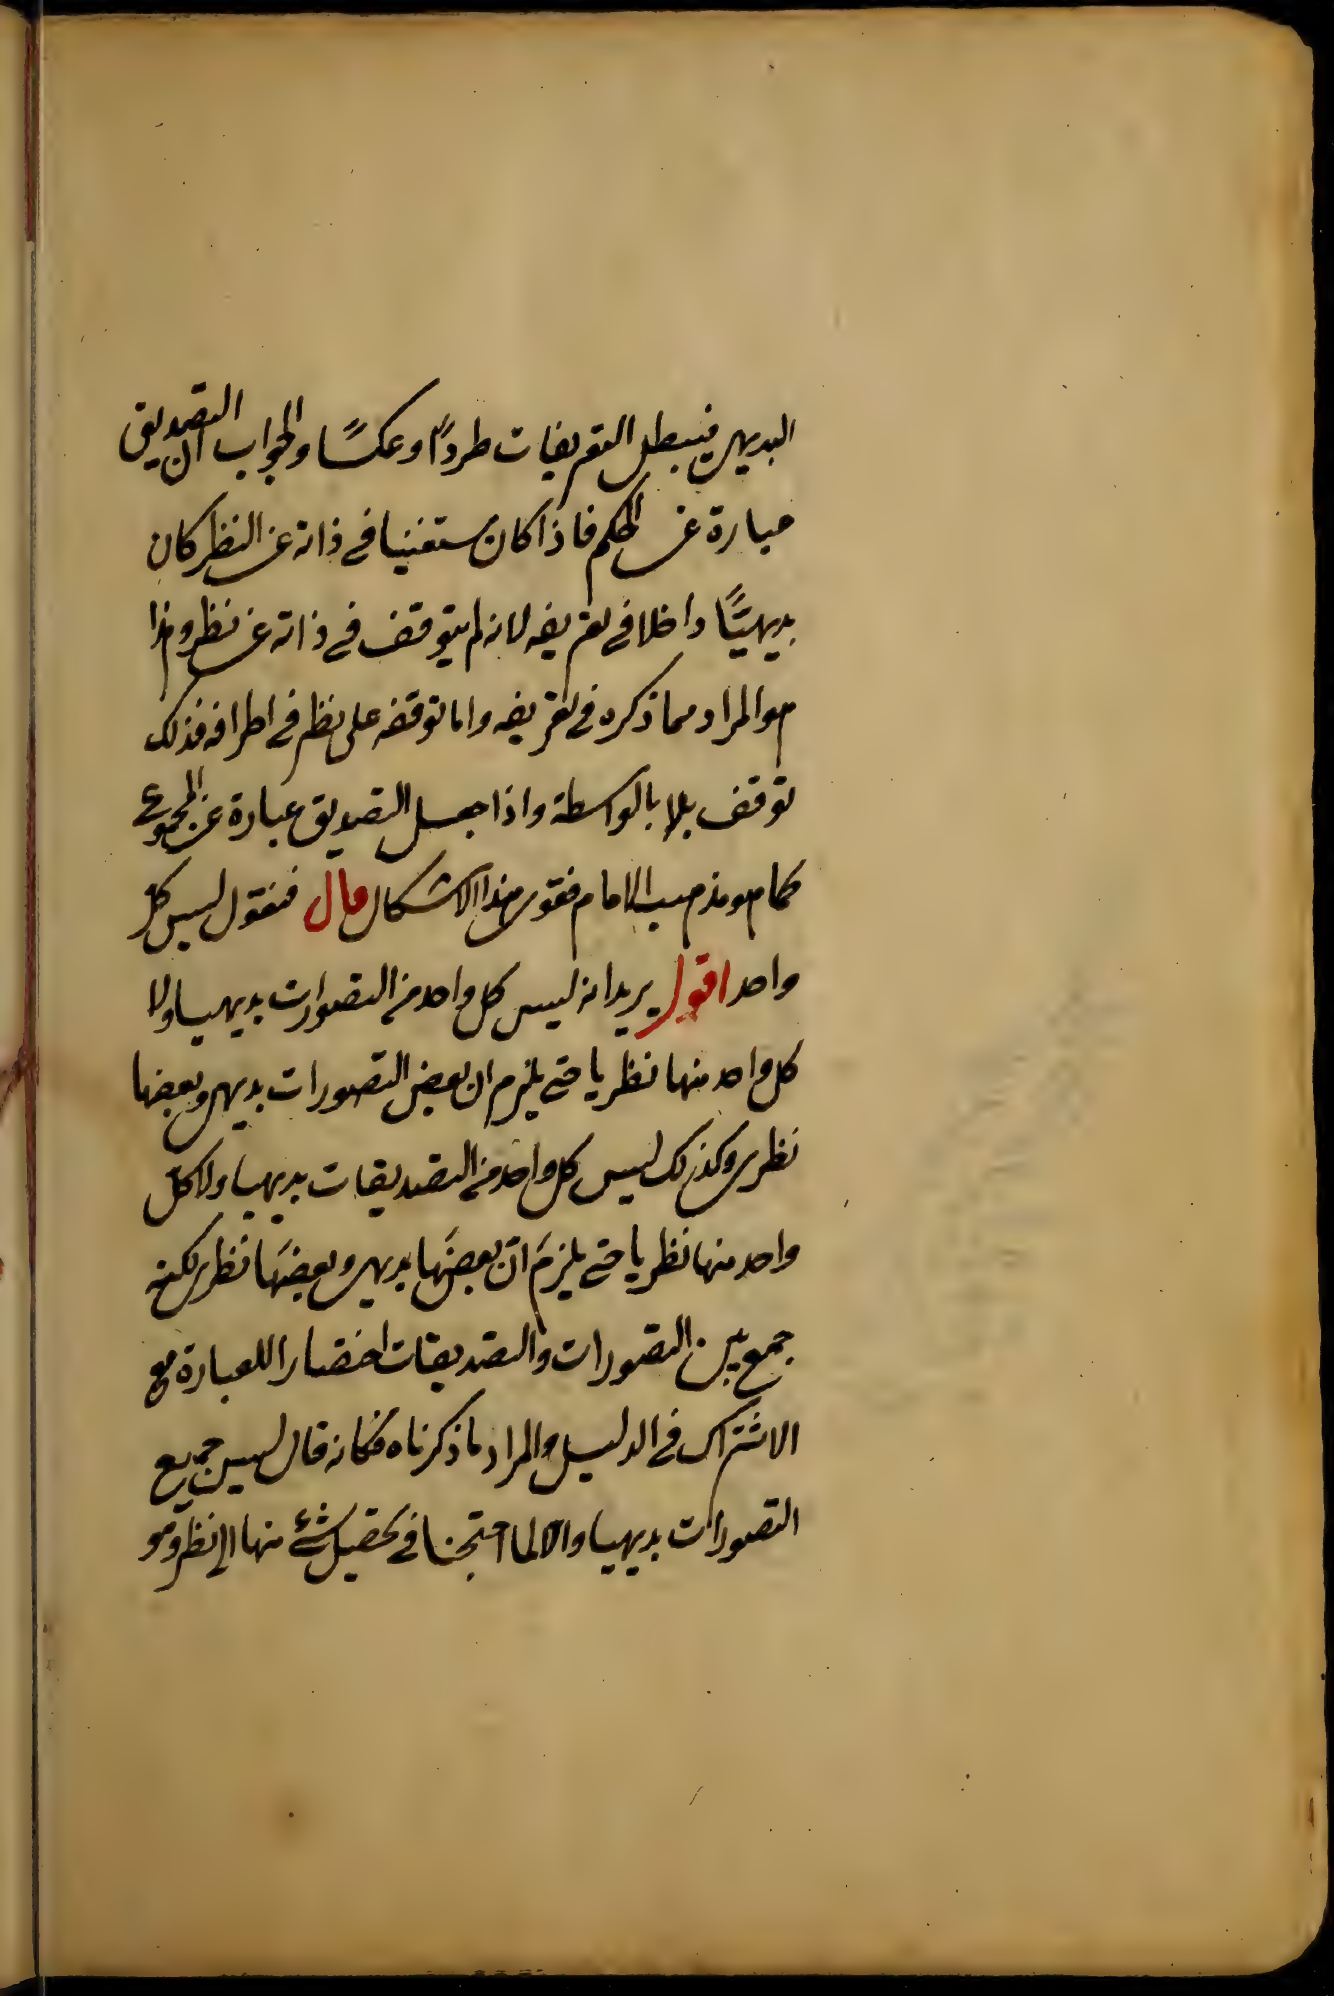 البديهى فيبطل التعريفات طردًا وعكسًا والجواب ان التصديق
عبارة عن الحكم فاذا كان مستغنيا فى ذاته عن النظر كان
بديهيًّا داخلا فى تعريفه لانه لم يتوقف فى ذاته عن نظر وهذا
هو المراد مما ذكره فى تعريفه واما توقفه على نظر فى اطرافه فذلك
توقف بلا بالواسطة واذا جعل التصديق عبارة عن المجموع
كما هو مذهب الامام فقوى هذا الاشكال قال فنقول ليس كل
واحد اقول يريد انه ليس كل واحد من التصورات بديهيا ولا
كل واحد منها نظريا حتى يلزم ان بعض التصورات بديهى وبعضها
نظرى وكذلك ليس كل واحد من التصديقات بديهيا ولا كل
واحد منها نظريا حتى يلزمَ انّ بعضَها بديهى وبعضَها نظرى لكنه
جمع بين التصورات والتصديقات اختصارا للعبارة مع
الاشتراك فى الدليل والمراد ما ذكرناه فكانه قال ليس جميع
التصورات بديهيا والا لما احتجنا فى تحصيل شئ منها الى نظر وهو